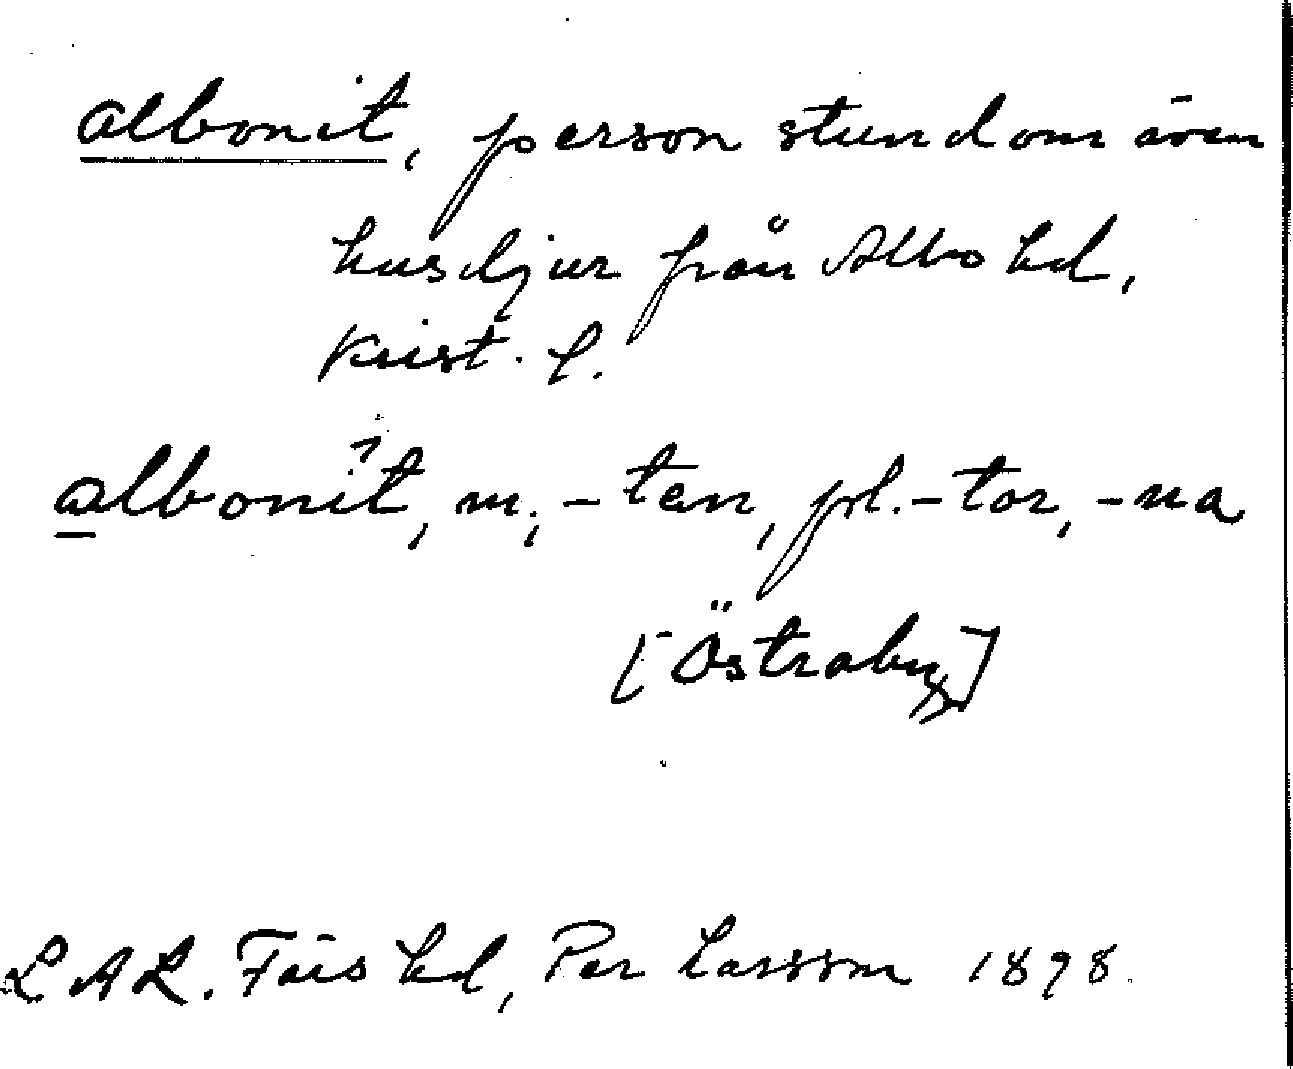 albonit, person stundom även
husdjur från Albo hd,
Krist. l.
albonit, m.; -ten, pl. -tor, -na
[Östraby]
LAL. Färs hd, Per Larsson 1898.